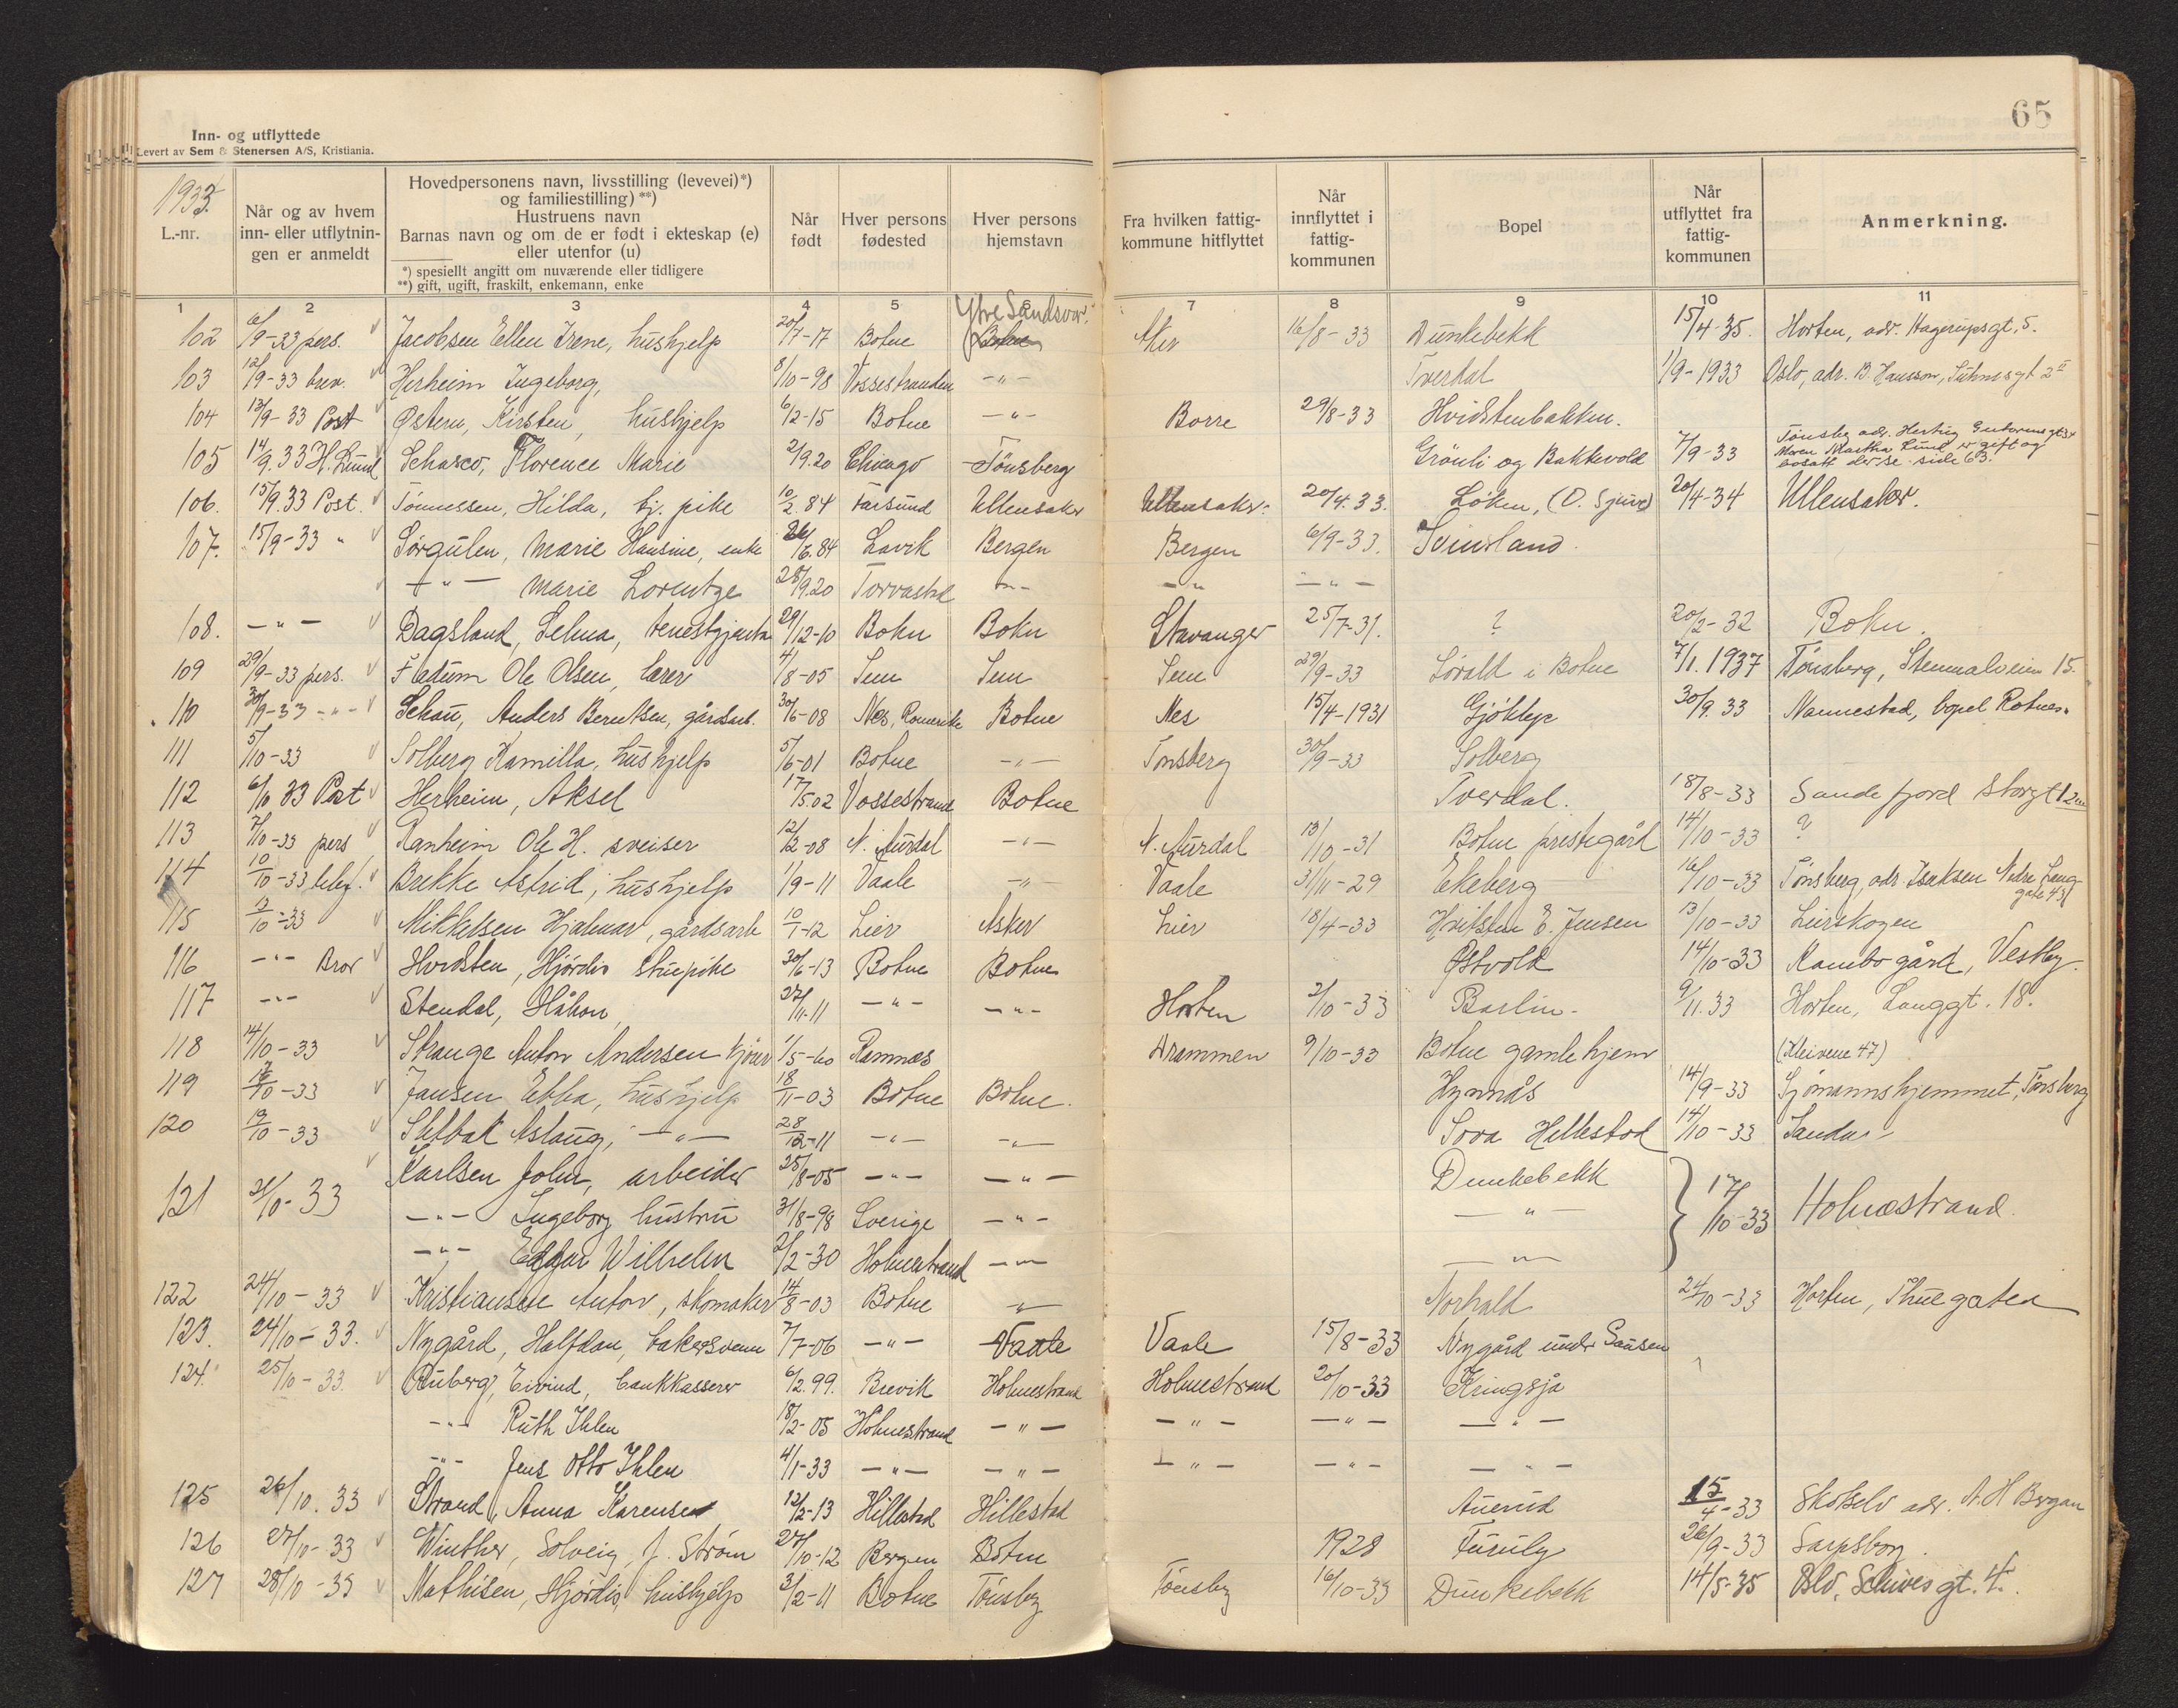 65
Inn- og utflyttede
Levert av Sem & Stenersen A/S, Kristiania.
1933.
L.-nr.
Når og av hvem inn- eller utflytnin- gen er anmeldt
Hovedpersonens navn, livsstilling (levevei)*)
og familiestilling)**)
Hustruens navn
Barnas navn og om de er født i ekteskap (e)
eller utenfor (u)
*) spesiellt angitt om nuværende eller tidligere
**) gift, ugift, fraskilt, enkemann, enke
Når født
Hver persons fødested
Hver persons hjemstavn
Fra hvilken fattig- kommune hitflyttet
Når innflyttet i fattig- kommunen
Bopel
Når utflyttet fra fattig- kommunen
Anmerkning.
1 2 3 4 5 6 7 8 9 10 11
Ytre Sandsvær.
102 6/9-33 pers. Jacobsen Ellen Irene, hushjelp 20/7-17 Botne Botne Aker 16/8-33 Dunkebekk 15/4-35. Horten, adr. Hagerupsgt. 5.
103 12/9-33 brev. Herheim Ingeborg, 8/10-98 Vossestranden -"- Tverdal 1/9-1933 Oslo, adr. B. Hansson,
104 13/9-33 Post Østern, Kirsten, hushjelp 6/2-15 Botne -"- Borre 29/8-33 Hvidstenbakken.
105 14/9.33 H. Lund Schasco, Florence Marie 2/9.20 Chicago Tönsberg Grönli og Bakkevold 7/9-33 Tönsbg adr. Hertug Guttormsgt
Moren Martha Lund er gift og
bosatt der se side 63.
106. 15/9.33 Post. Tönnessen, Hilda, tj. pike 10/2.84 Farsund Ullensaker Ullensaker 20/4.33. Löken, (O. Sjuve) 20/4-34 Ullensaker.
107. 15/9-33 " Sörgulen, Marie Hansine, enke 26/6.84 Lavik Bergen Bergen 6/9-33. Svinsland.
-"- Marie Lorentze 28/9.20 Torvastad -"- -"- -"-
108. -"- Dagsland, Selma, tenestgjenta 29/12-10 Bokn Bokn Stavanger 25/7-31. ? 20/2-32 Bokn.
109 29/9-33 pers. Fladum Ole Olsen, lærer 4/8-05 Sem Sem Sem 29/9-33 Lörald i Botne 7/1.1937 Tönsberg, 15.
110 30/9-33 -"- Schau, Anders Berntsen, gårdsarb. 30/6-08 Nes, Romerike Botne Nes 15/4-1931 Gjökleje 30/9.33 Nannestad, bopel Rotnes.
111 5/10-33 Solberg Kamilla, hushjelp 5/6-01 Botne -"- Tönsberg 30/9-33 Solberg
112 6/10 33 Post Herheim, Aksel 17/5.02 Vossestrand Botne Tverdal. 18/8-33 Sandefjord Storgt 12
113 7/10-33 pers Ranheim Ole H. sveiser 12/2-08 N. Aurdal -"- N. Aurdal 13/10-31 Botne prestegård 14/10-33 ?
114 10/10-33 telef. Brekke Astrid, hushjelp 1/9-11 Vaale -"- Vaale 31/11-29 Ekeberg 16/10-33 Tönsberg, adr Isaksen Nedre Lang-
gate 43
115 12/10-33 Mikkelsen Hjalmar, gårdsarb 10/1-12 Lier Asker Lier 18/4-33 Hvitsten E. Jensen 13/10-33 Leirskogen
116 -"- Bror Hvidsten, Hjördis stuepike 30/6-13 Botne Botne Østvold 14/10-33 Kambo gård, Vestby.
117 -"- Stendal, Håkon, 27/11-11 -"- -"- Horten 2/10-33 Barlin- 9/11.33 Horten, Langgt. 18.
118 14/10-33 Strange Anton Andersen 1/5-60 Ramnæs Drammen 9/10-33 Botne gamlehjem (Kleivene 47)
119 12/10-33 Jansen Ebba, hushjelp 18/11-03 Botne Botne. Hynnås 14/9-33 Sjömannshjemmet, Tönsberg
120 12/10-33 Solbak Aslaug, -"- 28/12-11 -"- -"- Sora Hellestad 14/10-33 Sandar
121 21/10-33 Karlsen John, arbeider 25/8-05 -"- -"- Dunkebekk 17/10-33 Holmestrand.
-"- Ingeborg hustru 31/8-98 Sverige -"- -"-
-"- Edgar Wilhelm 2/2-30 Holmestrand -"- -"-
122 24/10-33 Kristiansen Anton, skomaker 14/8-03 Botne -"- Norhald 24/10-33 Horten, Thuegaten
123. 24/10-33. Nygård, Halfdan, bakersvenn 7/7-06 -"- Vaale Vaale 15/8-33 Nygård under Sausen
124. 25/10-33. Ruberg, Eivind, bankkasserer 6/2.99. Brevik Holmestrand Holmestrand 20/10-33 Kringsjå
-"- Ruth Ihlen 18/2-05 Holmestrand -"- -"- -"- -"-
-"- Jens Otto Ihlen 4/1-33 -"- -"- -"- -"- -"-
125 26/10.33 Strand, Anna Karense 12/2-13 Hillestad Hillestad Auerud 15/4-33 Skotselv adr. A. H Bergan
126 27/10-33 Winther, Solveig, f. Ström 27/10-12 Bergen Botne 1928 Furuly 26/9-33 Sarpsborg.
127 28/10-33 Mathisen, Hjördis, hushjelp 3/2-11 Botne Tönsbg Tönsbg 16/10-33 Dunkebekk 14/5-35 Oslo, Schives gt. 4.